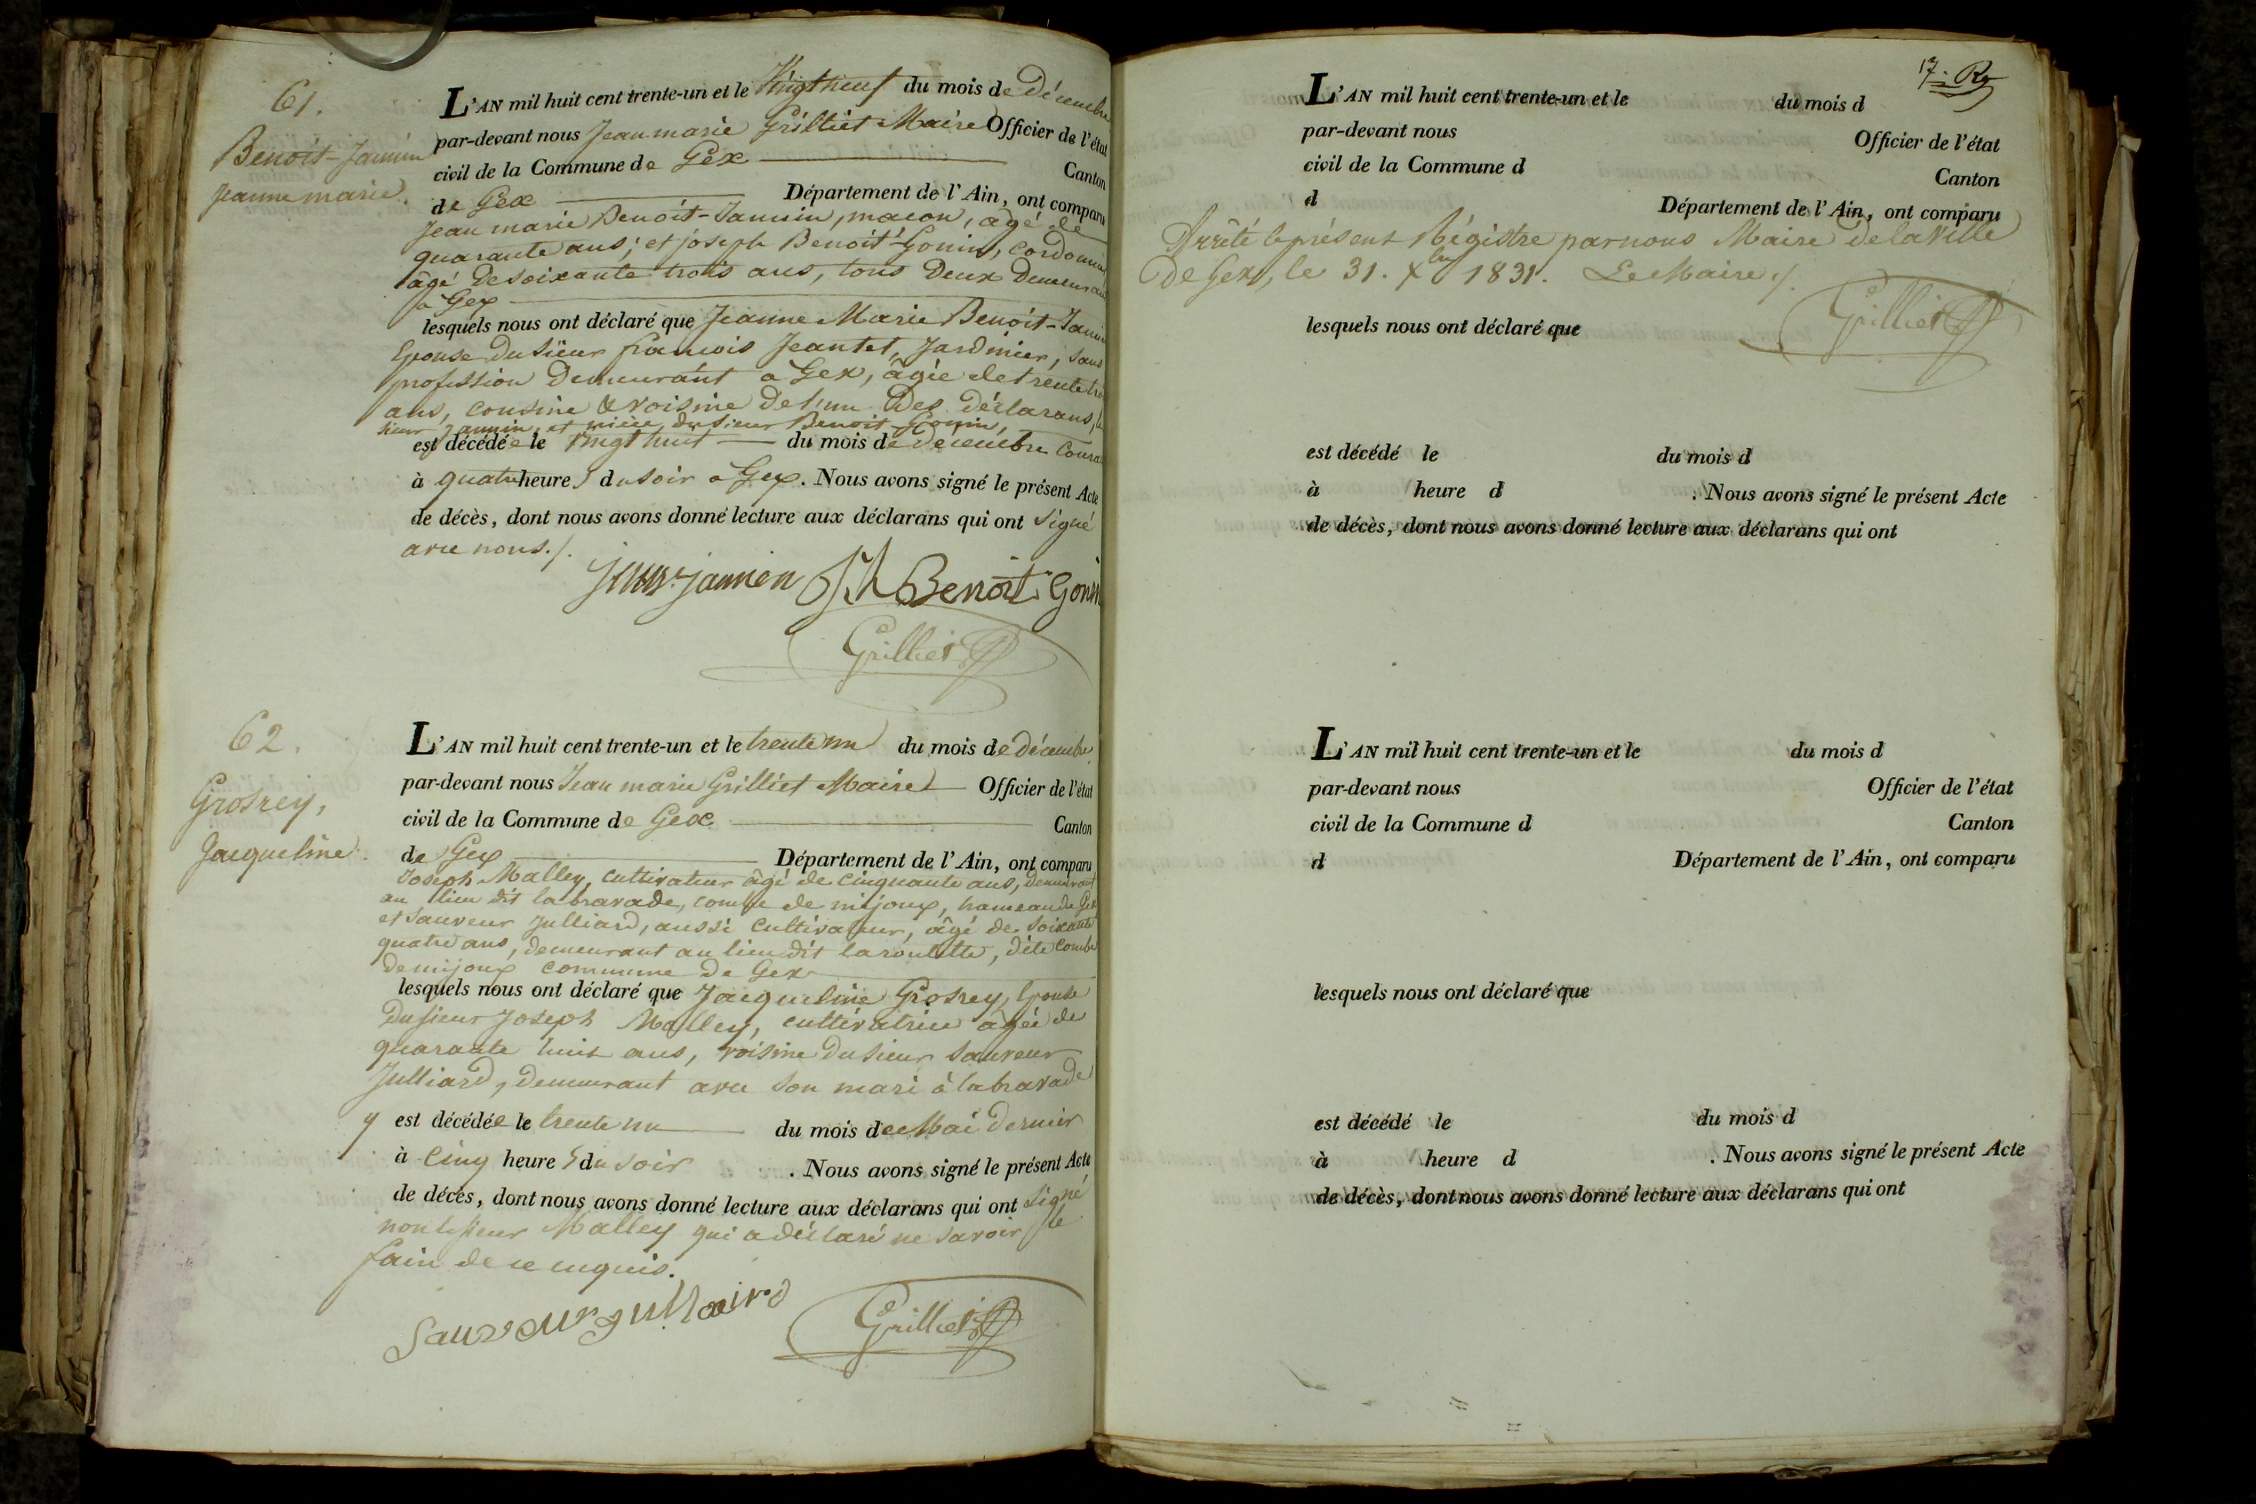 61.
Benoit-Jannin
Jeanne marie.
L'AN mil huit cent trente-un et le Vingt neuf du mois de Décembre
par-devant nous Jean marie Grilliet Maire Officier de l'état
civil de la Commune de Gex Canton
de Gex Département de l'Ain, ont comparu
Jean marie Benoit-Jannin, macon, âgé de
quarante ans; et joseph Benoit-Gonin, cordonnier
âgé de soixante trois ans, tous deux demeurant
à Gex
lesquels nous ont déclaré que Jeanne Marie Benoit-Jannin
Epouse du sieur françois Jeantet, Jardinier, sans
profession Demeurant a Gex, âgée de trente trois
ans, cousine & voisine de l'un des déclarans, le
sieur Jannin, et nièce du sieur Benoit-Gonin,
est décédée le vingt huit du mois de décembre courant
à quatre heures du soir a Gex. Nous avons signé le présent Acte
de décès, dont nous avons donné lecture aux déclarans qui ont signé
avec nous./.
jannien Jh Benoit Gonin
Grilliet
62.
Grosrey,
Jacqueline.
L'AN mil huit cent trente-un et le trente un du mois de décembre
par-devant nous Jean marie Grilliet Maire Officier de l'état
civil de la Commune de Gex Canton
de Gex Département de l'Ain, ont comparu
Joseph Malley, cultivateur âgé de cinquante ans, demeurant
au lieu dit la bravade, combe de mijoux, hameau de Gex
et Sauveur Julliard, aussi cultivateur, âgé de soixante
quatre ans, demeurant au lieu dit la roulette, dite combe
de mijoux commune de Gex
lesquels nous ont déclaré que Jacqueline Grosrey, Epouse
du sieur Joseph Malley, cultivatrice âgée de
quarante huit ans, voisine du sieur Sauveur
Julliard, demeurant avec son mari à la bravade
y est décédée le trente un du mois de Mai dernier
à cinq heures du soir . Nous avons signé le présent Acte
de décès, dont nous avons donné lecture aux déclarans qui ont signé
non le sieur Malley qui a déclaré ne savoir le
faire de ce enquis.
Sauveur julliaird
Grilliet
17.
L'AN mil huit cent trente-un et le du mois d
par-devant nous Officier de l'état
civil de la Commune d Canton
d Département de l'Ain, ont comparu
Arrêté le présent Régistre par nous Maire de la Ville
de Gex, le 31. Xbre 1831. Le Maire ./.
Grilliet
lesquels nous ont déclaré que
est décédé le du mois d
à heure d . Nous avons signé le présent Acte
de décès, dont nous avons donné lecture aux déclarans qui ont
L'AN mil huit cent trente-un et le du mois d
par-devant nous Officier de l'état
civil de la Commune d Canton
d Département de l'Ain, ont comparu
lesquels nous ont déclaré que
est décédé le du mois d
à heure d . Nous avons signé le présent Acte
de décès, dont nous avons donné lecture aux déclarans qui ont